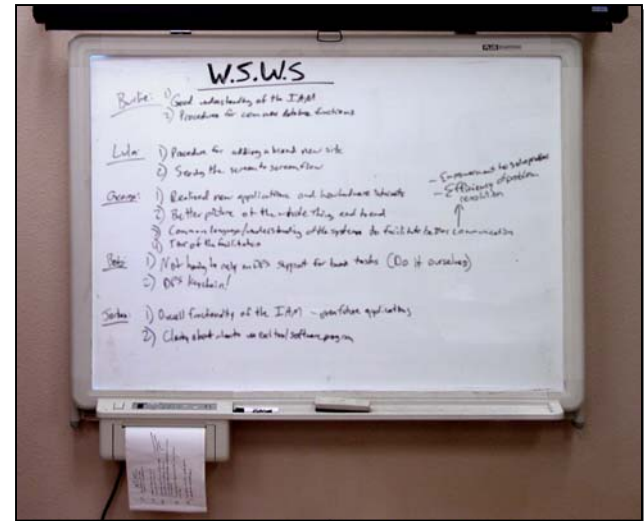 W.S.W.S
1) Good understanding of the IAM
2) Procedures for common database functions
Lula: 1) Procedure for adding a brand new site
2) Seeing the screen to screen flow
George: 1) Realized new applications and
2) Better picture of the whole thing end to end
3) Common language/understanding of the systems to facilitate better communication
4) Tour of the facilities
- Empowerment to solve problems
- Efficiency of problem resolution
1) Not having to rely on DPS support for tasks (Do it ourselves)
2) DPS keychain!
1) Overall functionality of the IAM - future applications
2) Clarity about software program
PLUS